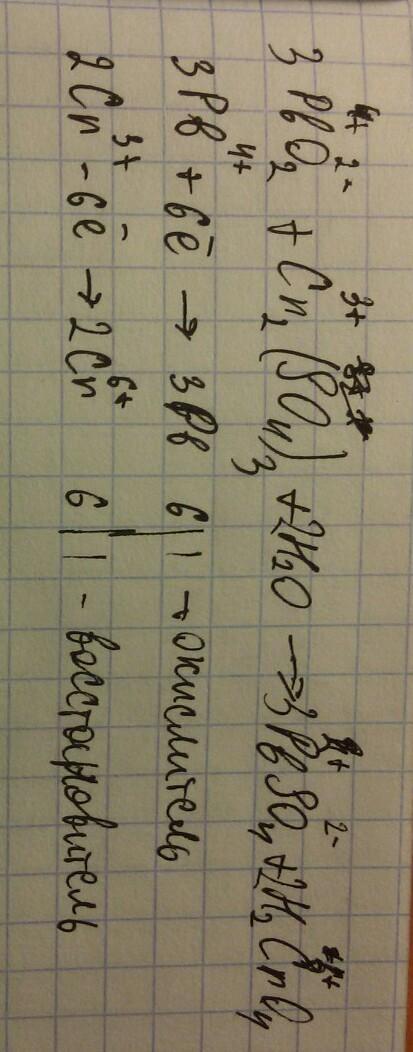 3PbO₂ + Cr₂(SO₄)₃ + 2H₂O → 3PbSO₄ + 2H₂CrO₄
3Pb⁴⁺ + 6ē → 3Pb 6 | 1 → окислитель
2Cr³⁺ - 6ē → 2Cr⁶⁺ 6 | 1 - восстановитель